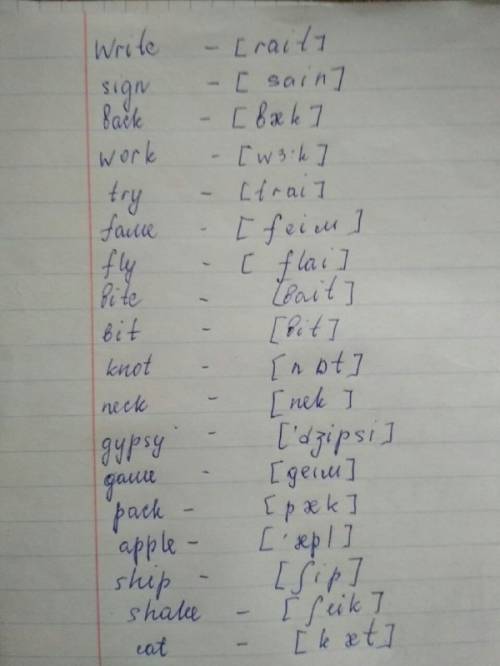 write - [rait]
sign - [sain]
back - [bæk]
work - [wɜ:k]
try - [trai]
fame - [feim]
fly - [flai]
bite - [bait]
bit - [bit]
knot - [nɒt]
neck - [nek]
gypsy - ['dʒipsi]
game - [geim]
pack - [pæk]
apple - ['æpl]
ship - [ʃip]
shake - [ʃeik]
cat - [kæt]